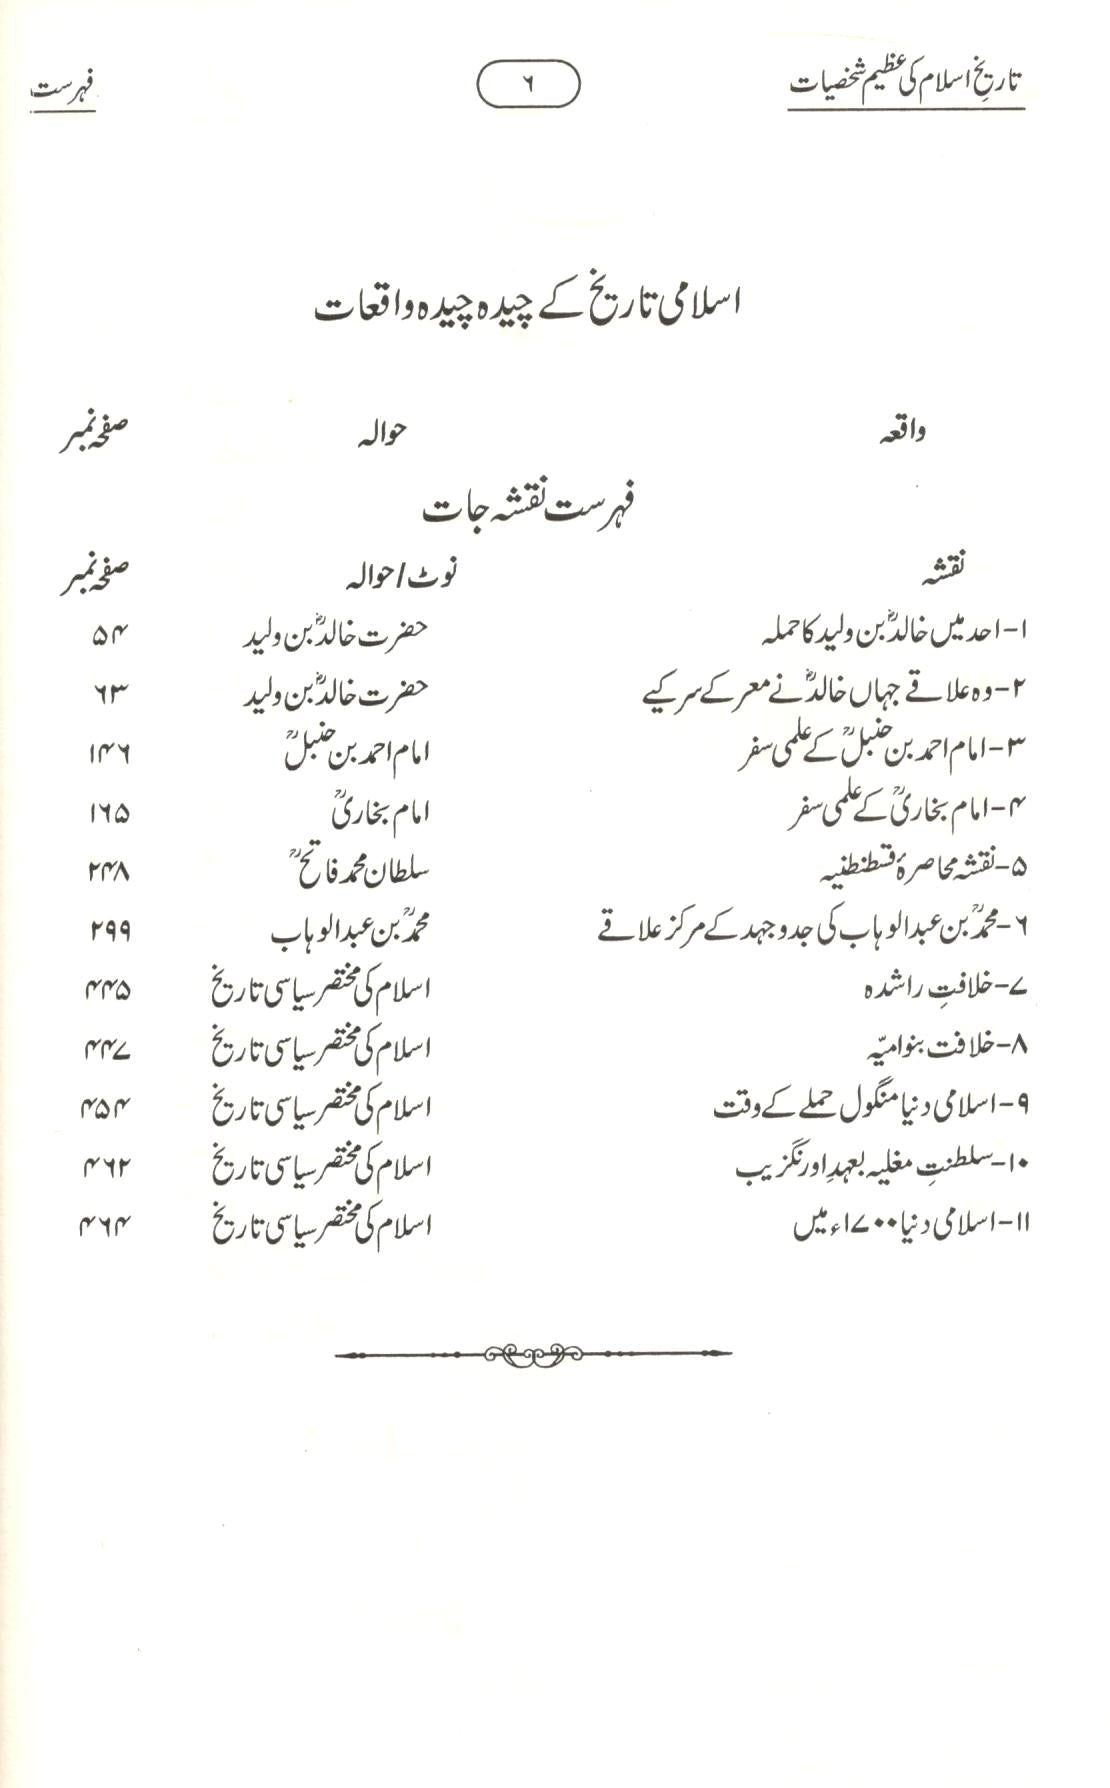 تاریخِ اسلام کی عظیم شخصیات ۶ فہرست
اسلامی تاریخ کے چیدہ چیدہ واقعات
واقعہ حوالہ صفحہ نمبر
فہرست نقشہ جات
نقشہ نوٹ/حوالہ صفحہ نمبر
۱-احد میں خالدؓ بن ولید کا حملہ حضرت خالدؓ بن ولید ۵۴
۲-وہ علاقے جہاں خالدؓ نے معرکے سر کیے حضرت خالدؓ بن ولید ۶۳
۳-امام احمد بن حنبلؒ کے علمی سفر امام احمد بن حنبلؒ ۱۴۶
۴-امام بخاریؒ کے علمی سفر امام بخاریؒ ۱۶۵
۵-نقشہ محاصرۂ قسطنطنیہ سلطان محمد فاتحؒ ۲۴۸
۶-محمدؒ بن عبدالوہاب کی جدوجہد کے مرکز علاقے محمدؒ بن عبدالوہاب ۲۹۹
۷-خلافتِ راشدہ اسلام کی مختصر سیاسی تاریخ ۴۴۵
۸-خلافت بنوامیّہ اسلام کی مختصر سیاسی تاریخ ۴۴۷
۹-اسلامی دنیا منگول حملے کے وقت اسلام کی مختصر سیاسی تاریخ ۴۵۴
۱۰-سلطنتِ مغلیہ بعہدِ اورنگزیب اسلام کی مختصر سیاسی تاریخ ۴۶۲
۱۱-اسلامی دنیا ۱۷۰۰ء میں اسلام کی مختصر سیاسی تاریخ ۴۶۴